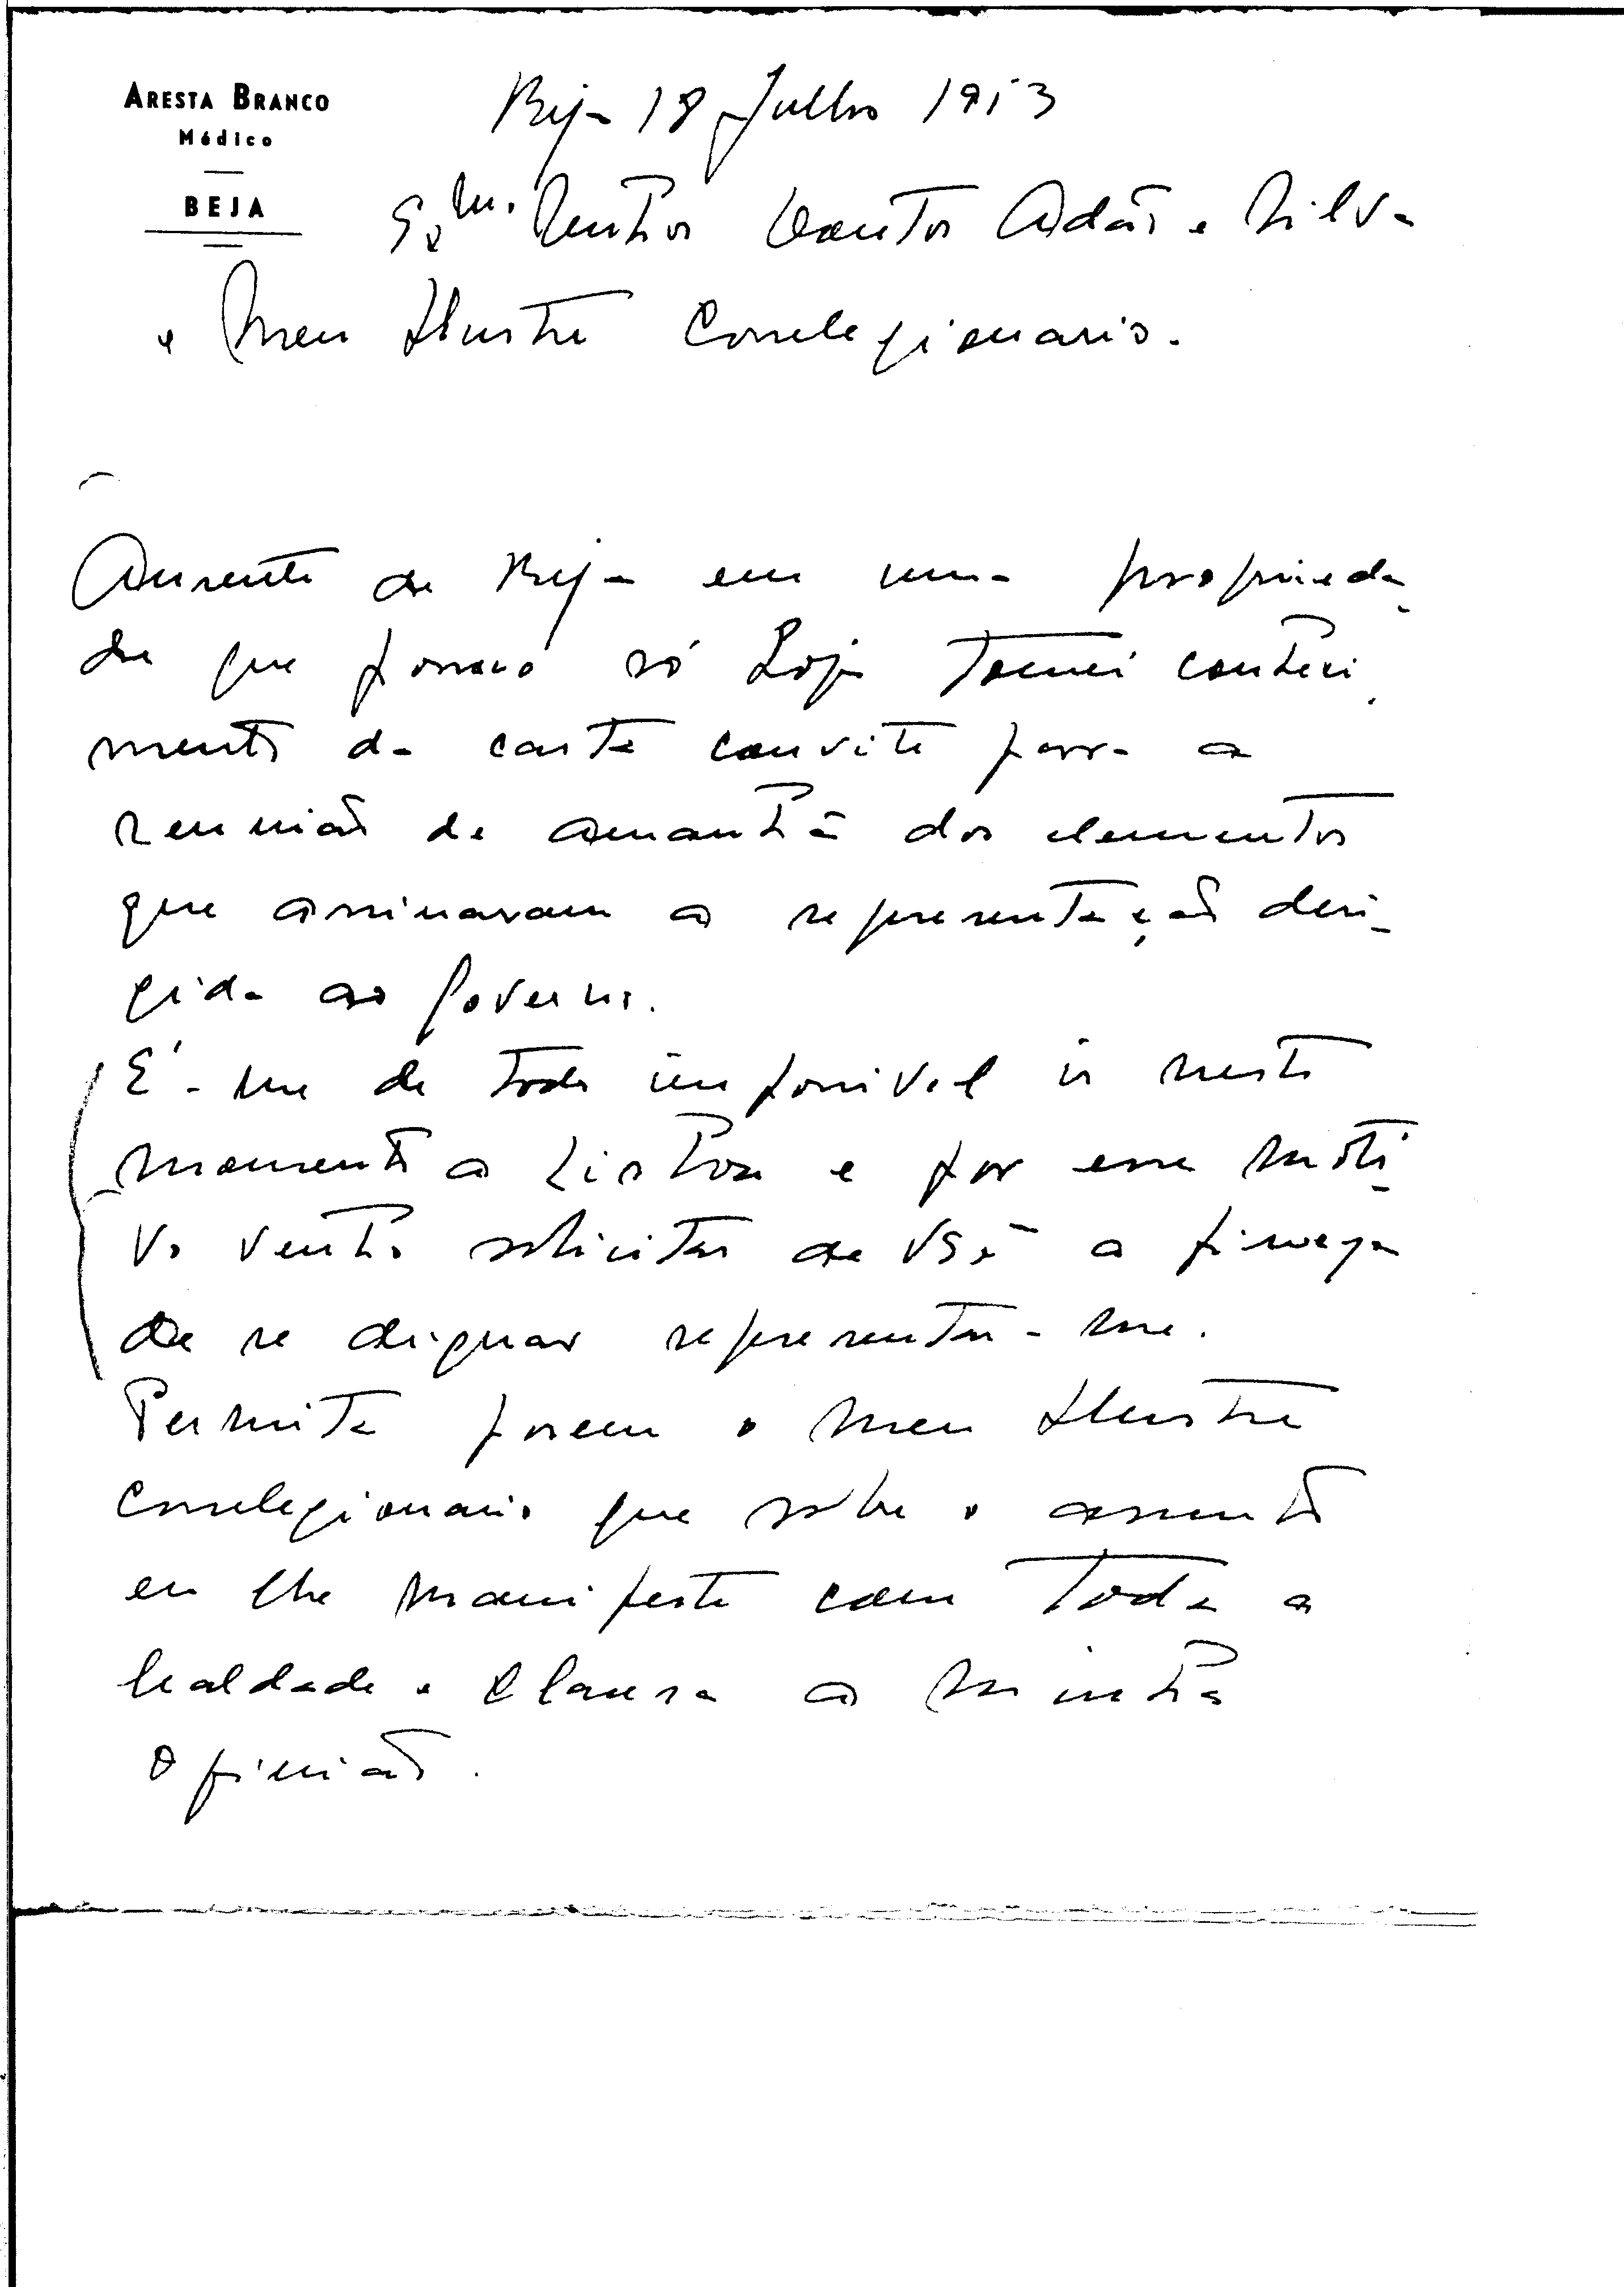 ARESTA BRANCO
Médico
BEJA
Beja 18 Julho 1953
Exm. Senhor Doutor Adão e Silva
e Meu Ilustre Correlegionario.
Ausente de Beja em uma proprieda
de que possuo só hoje tomei conheci
mento da carta convite para a
reunião de amanhã dos elementos
que assinaram a representação diri-
gida ao governo.
É-me de todo impossivel ir neste
momento a Lisboa e por esse moti-
vo venho solicitar de V Exª a fineza
de se dignar representar-me.
Permita porem o meu Ilustre
Correlegionario que sobre o assunto
eu lhe manifeste com toda a
lealdade e clareza a minha
opinião.